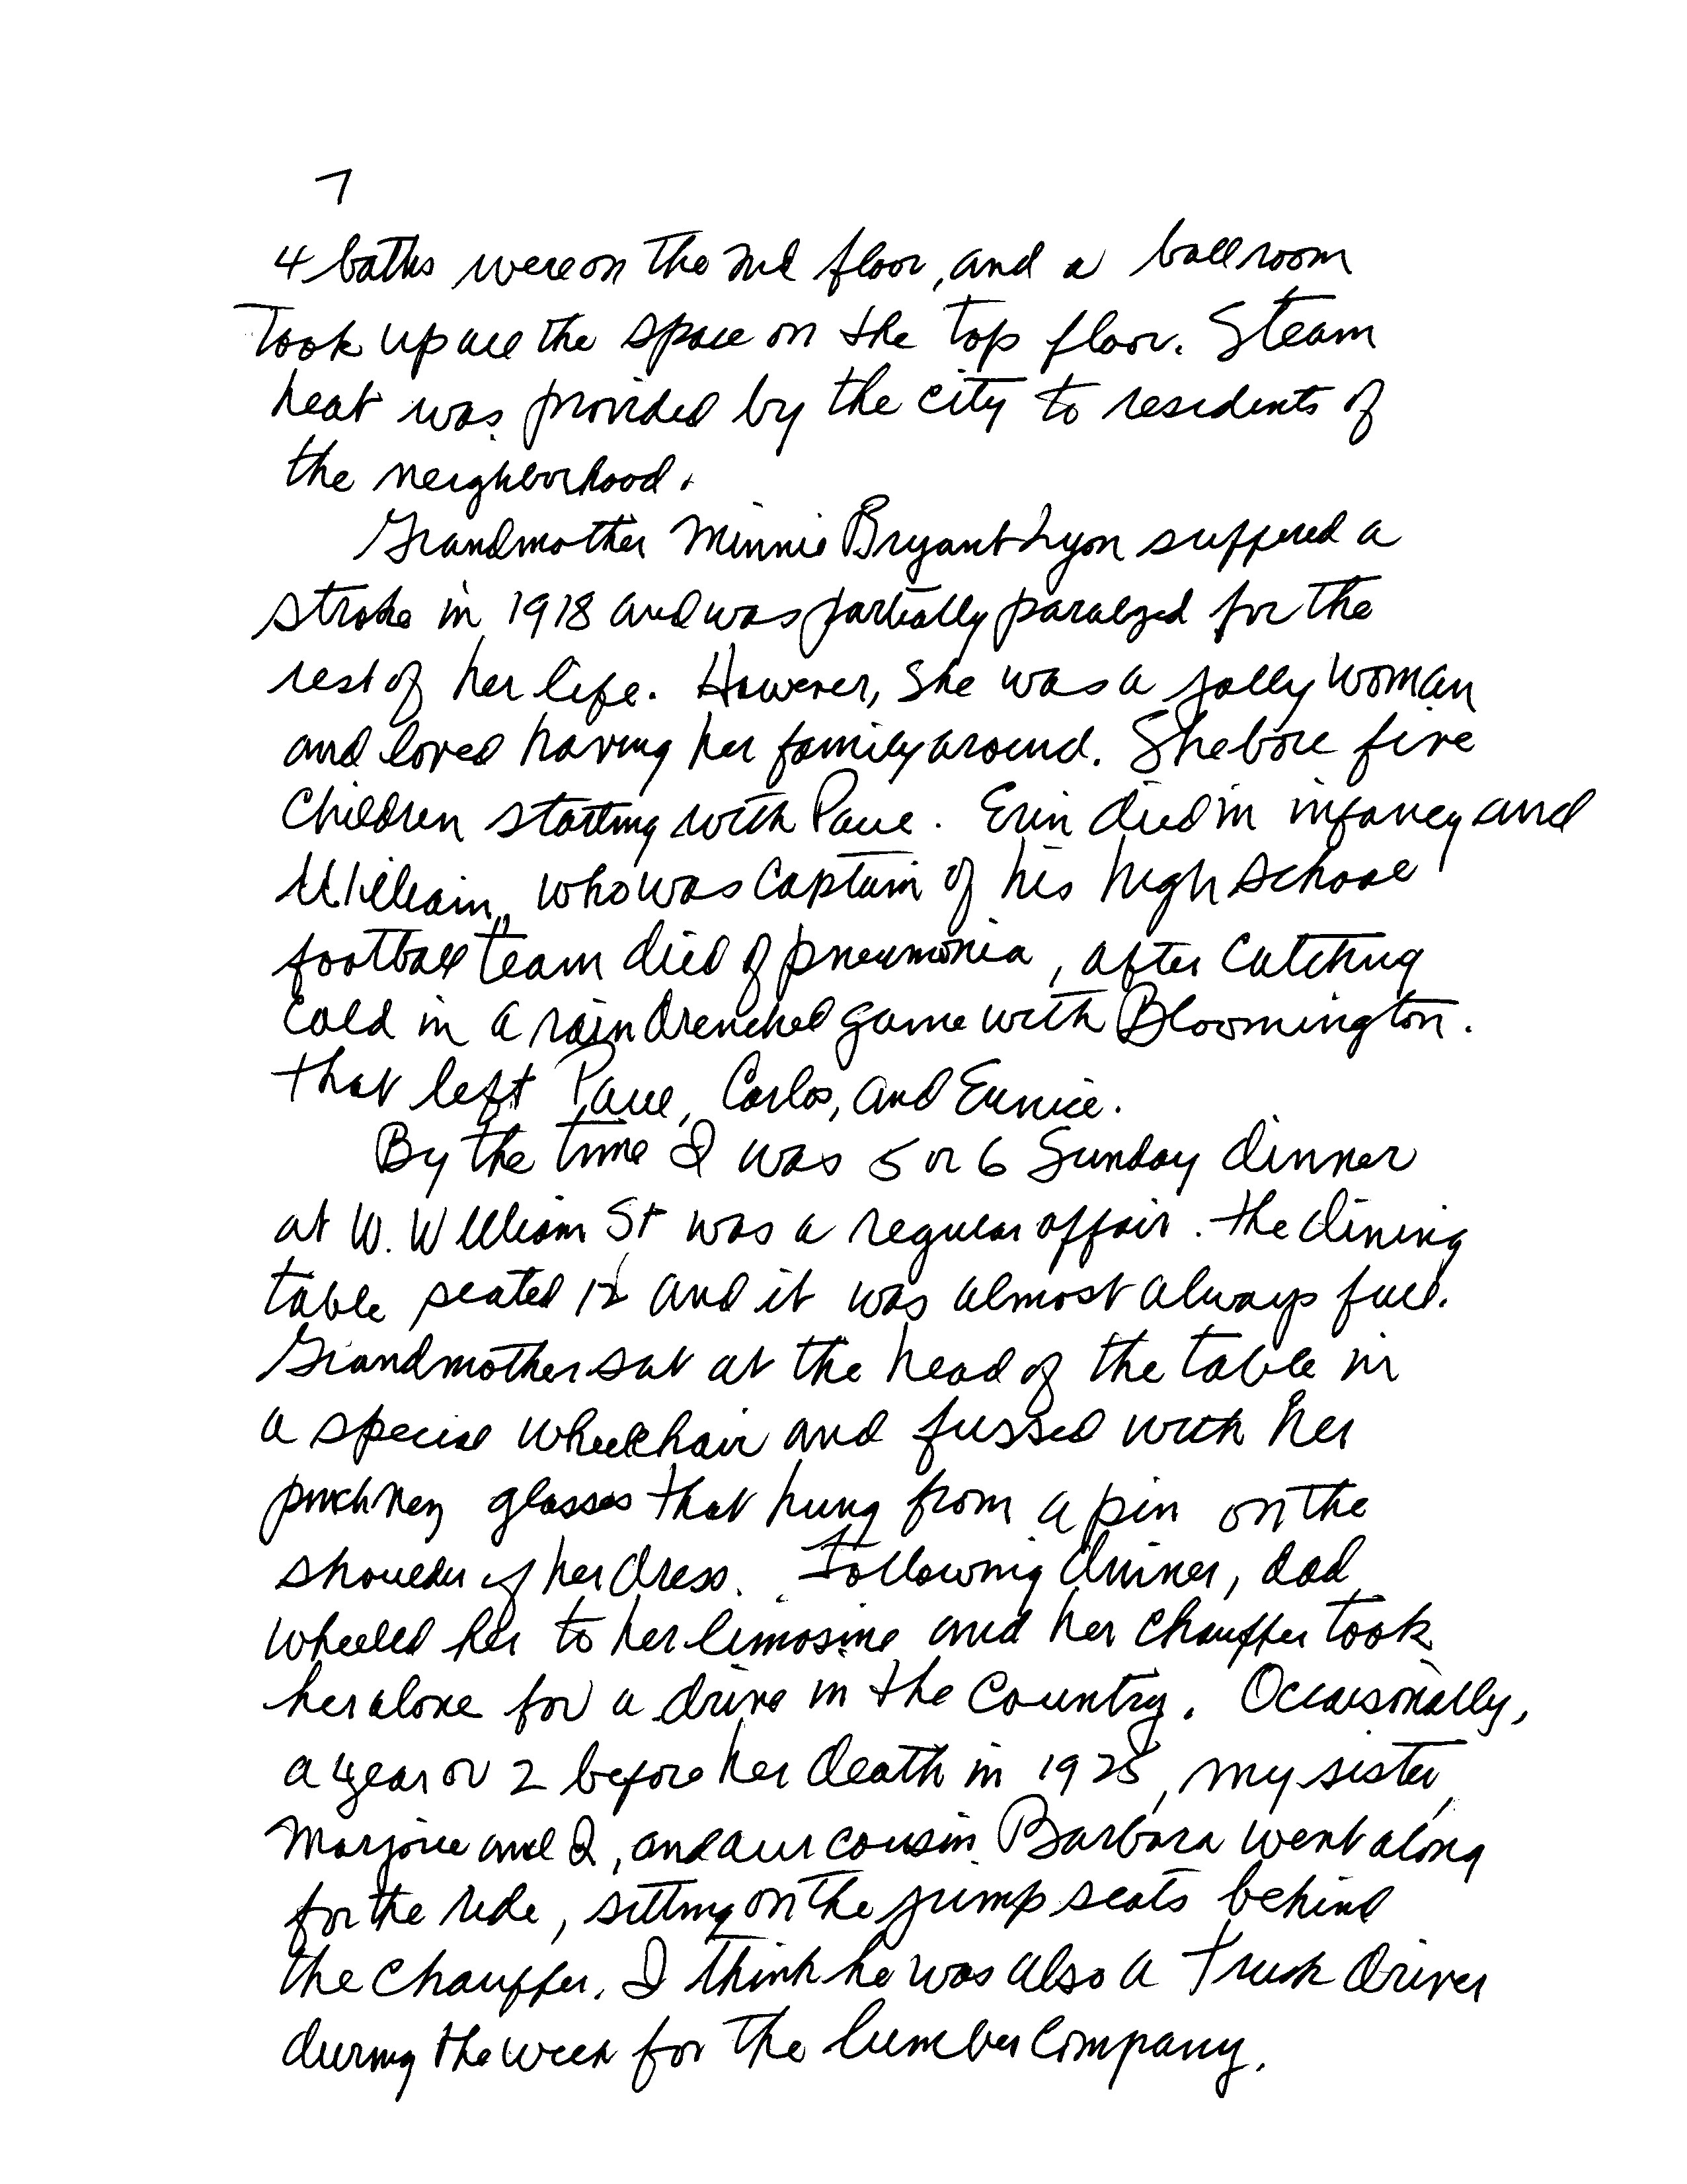 7
4 baths were on the 2nd floor, and a ballroom
Took up all the space on the top floor. Steam
heat was provided by the city to residents of
the neighborhood.
Grandmother Minnie Bryant Lyon suffered a
stroke in 1918 and was partially paralzed for the
rest of her life. However, She was a jolly woman
and loved having her family around. She bore five
Children starting with Paul. Erin died in infancy and
William, who was Captain of his high School
football team died of pneumonia, after Catching
Cold in a rain drenched game with Bloomington.
That left Paul, Carlos, and Eunice.
By the time I was 5 or 6 Sunday dinner
at W. William St was a regular affair. The dining
table seated 12 and it was almost always full.
Grandmother sat at the head of the table in
a special wheelchair and fussed with her
glasses that hung from a pin on the
shoulder of her dress. Following dinner, dad
wheeled her to her limosine and her chauffer took
her alone for a drive in the Country. Occaisonally,
a year or 2 before her death in 1928, my sister,
Marjorie and I, and our cousin Barbara went along
for the ride, sitting on the jump seats behind
the chauffer. I think he was also a Truck driver
during the week for the lumber Company.